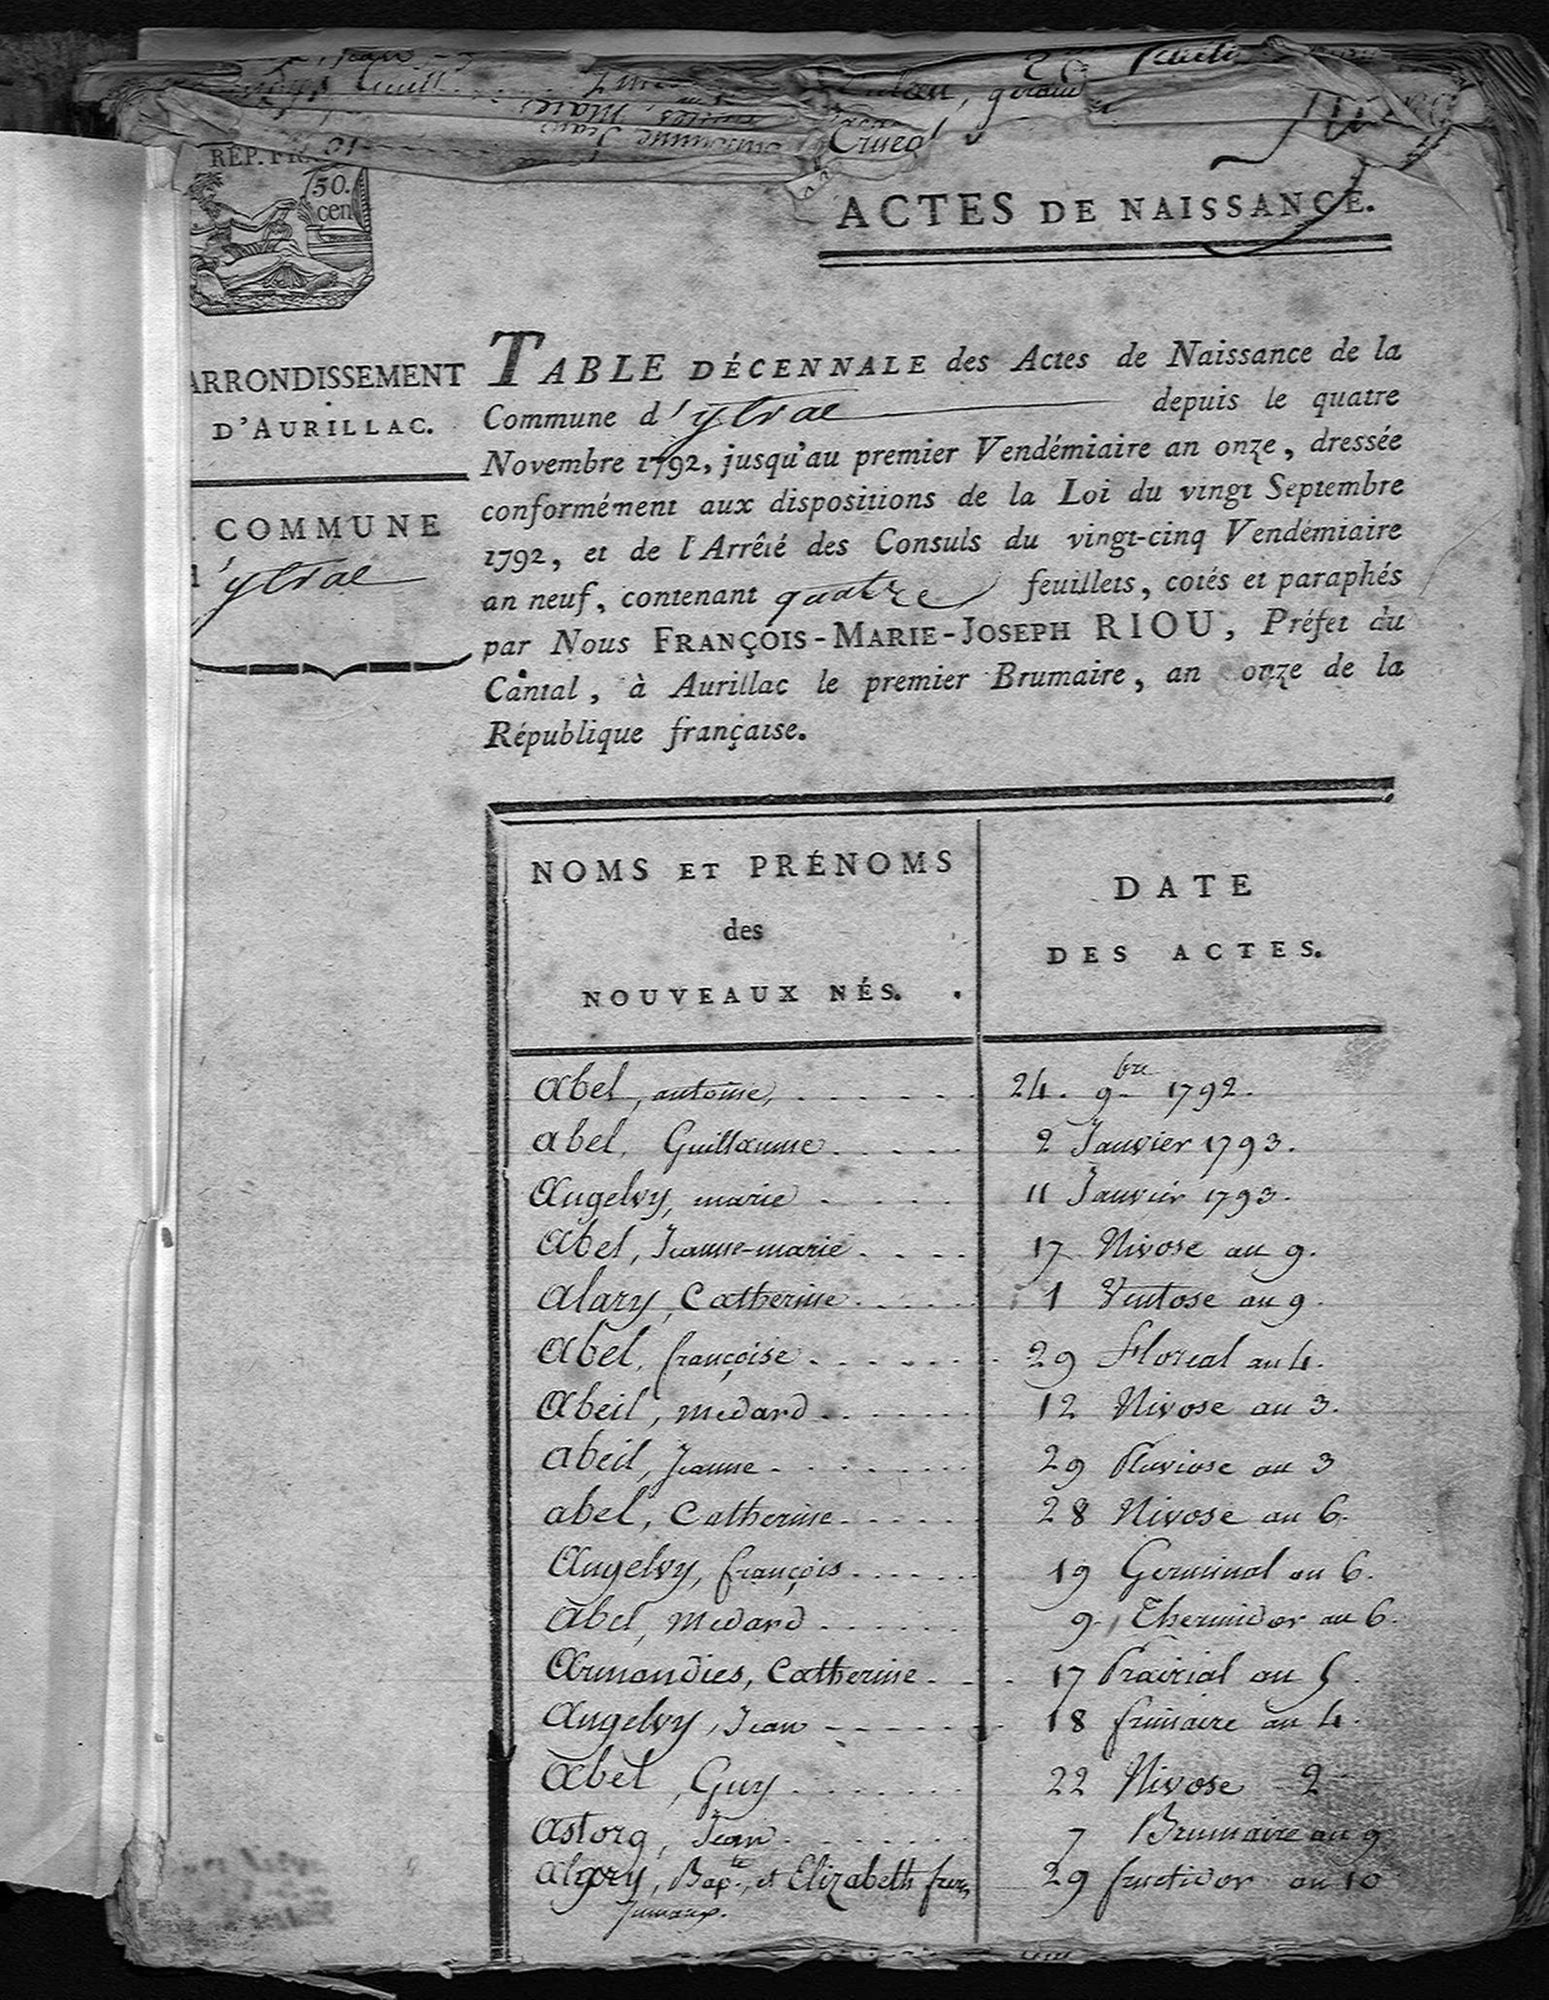 Crueol
RÉP. FRA
50.
cen
ACTES DE NAISSANCE.
ARRONDISSEMENT
D'AURILLAC.
COMMUNE
d'ytrac
TABLE DÉCENNALE des Actes de Naissance de la
Commune d'ytrac depuis le quatre
Novembre 1792, jusqu'au premier Vendémiaire an onze, dressée
conformément aux dispositions de la Loi du vingt Septembre
1792, et de l'Arrêté des Consuls du vingt-cinq Vendémiaire
an neuf, contenant quatre feuillets, cotés et paraphés
par Nous FRANÇOIS-MARIE-JOSEPH RIOU, Préfet du
Cantal, à Aurillac le premier Brumaire, an onze de la
République française.
NOMS ET PRÉNOMS
des
NOUVEAUX NÉS.
DATE
DES ACTES.
Abel, antoine, . . . . . . 24. 9bre 1792.
abel, Guillaume . . . . . 2 Janvier 1793.
Augelvy, marie . . . . . 11 Janvier 1793.
Abel, Jeanne-marie . . . . 17 Nivose an 9.
alary, Catherine . . . . . 1 Ventose an 9.
Abel, françoise . . . . . . 29 Floreal an 4.
Abeil, medard . . . . . . 12 Nivose an 3.
abeil, Jeanne . . . . . . . 29 Pluviose an 3
abel, Catherine . . . . . 28 Nivose an 6.
Augelvy, françois . . . . . 19 Germinal an 6.
Abel, Medard . . . . . . 9 Thermidor an 6.
Armandies, Catherine . . . 17 Prairial an 5.
Augelvy, Jean . . . . . . 18 frimaire an 4.
Abel, Guy . . . . . . 22 Nivose 2
astorg, Jean . . . . . . 7 Brumaire an 9
alary, Bapte, et Elizabeth frers 29 fructidor an 10
Jumaux.